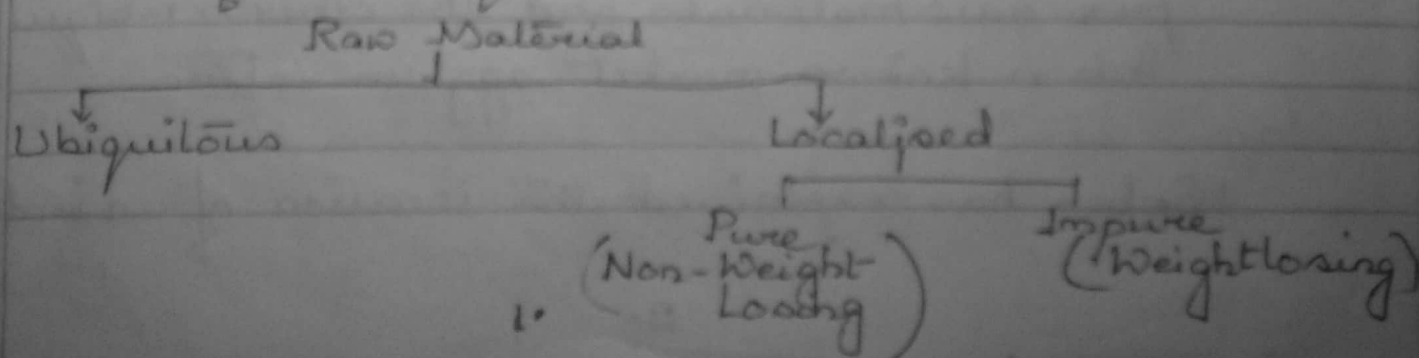 Raw Material
Ubiquitous
Localised
Pure
(Non-Weight
Loosing)
Impure
(Weightlosing)
1.